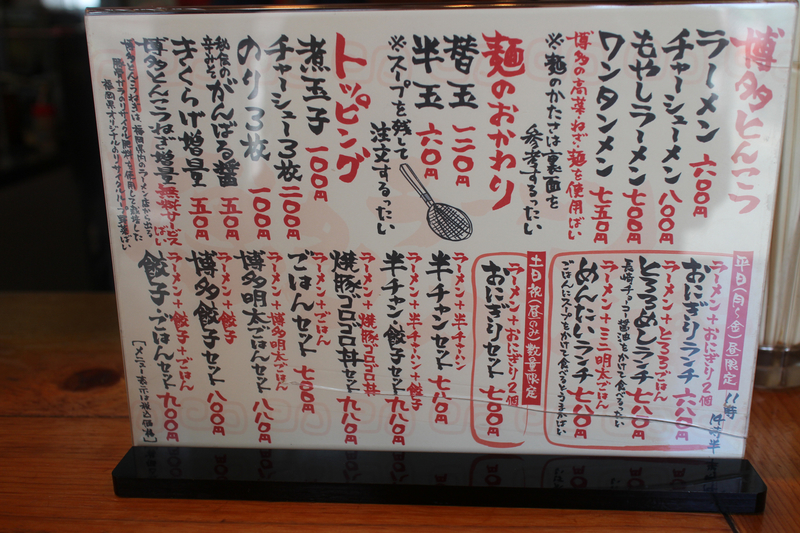 博多とんこつ
ラーメン 六〇〇円
チャーシューメン 八〇〇円
もやしラーメン 七〇〇円
ワンタンメン 七五〇円
博多の高菜ねぎ麺を使用ばい
※麺のかたさは裏面を
参考するったい
麺のおかわり
替玉 一二〇円
半玉 六〇円
※スープを残して
注文するったい
トッピング
煮玉子 一〇〇円
チャーシュー3枚 二〇〇円
のり3枚 一〇〇円
秘伝の
辛みそ がんばる醤 五〇円
きくらげ増量 五〇円
博多とんこつねぎ増量 無料サービスばい
博多とんこつねぎは、福岡県内のラーメン店から出る
豚骨ガラのリサイクル肥料を使用して栽培した
福岡県オリジナルのリサイクルループ野菜ばい
平日(月〜金)昼限定
11時
14時半
ラーメン+おにぎり2個
おにぎりランチ 六八〇円
ラーメン+とろろごはん
とろろめしランチ 七八〇円
長崎チョーコー醤油をかけて食べるったい
ラーメン+ミニ明太ごはん
めんたいランチ 七八〇円
ごはんにスープをかけて食べるとうまかばい
土日祝(昼のみ)数量限定
ラーメン+おにぎり2個
おにぎりセット 七〇〇円
ラーメン+半チャーハン
半チャンセット 七八〇円
ラーメン+半チャーハン+餃子
半チャン餃子セット 九八〇円
ラーメン+焼豚ゴロゴロ丼
焼豚ゴロゴロ丼セット 九八〇円
ラーメン+ごはん
ごはんセット 七〇〇円
ラーメン+博多明太ごはん
博多明太ごはんセット 八八〇円
ラーメン+餃子
博多餃子セット 八〇〇円
ラーメン+餃子+ごはん
餃子ごはんセット 九〇〇円
[メニュー表示は税込価格]